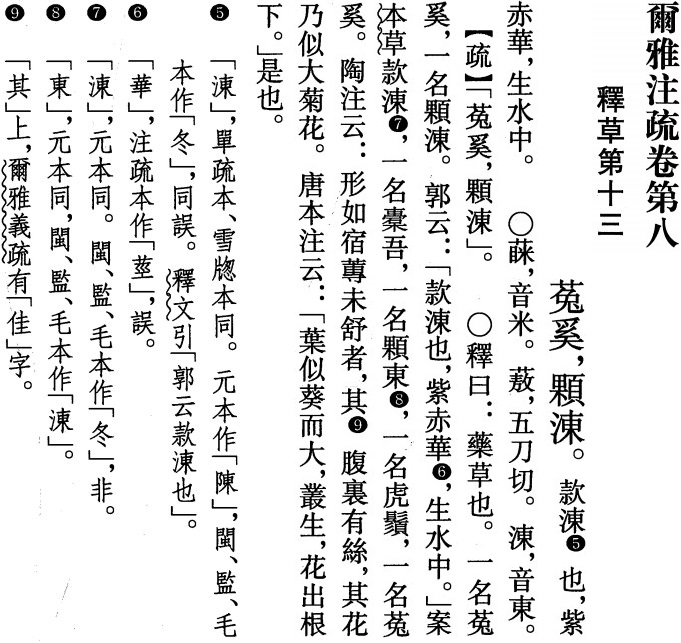 爾雅注疏卷第八
釋草第十三
菟奚，顆涷。款涷❺也，紫
赤華，生水中。　○蔝，音米。蔜，五刀切。涷，音東。
【疏】「菟奚，顆涷」。　○釋曰：藥草也。一名菟
奚，一名顆涷。郭云：「款涷也，紫赤華❻，生水中。」案
本草款涷❼，一名橐吾，一名顆東❽，一名虎鬚，一名菟
奚。陶注云：形如宿蓴未舒者，其❾腹裏有絲，其花
乃似大菊花。唐本注云：「葉似葵而大，叢生，花出根
下。」是也。
❺　「涷」，單疏本、雪牕本同。元本作「陳」，閩、監、毛
本作「冬」，同誤。釋文引「郭云款涷也」。
❻　「華」，注疏本作「莖」，誤。
❼　「涷」，元本同。閩、監、毛本作「冬」，非。
❽　「東」，元本同，閩、監、毛本作「涷」。
❾　「其」上，爾雅義疏有「佳」字。